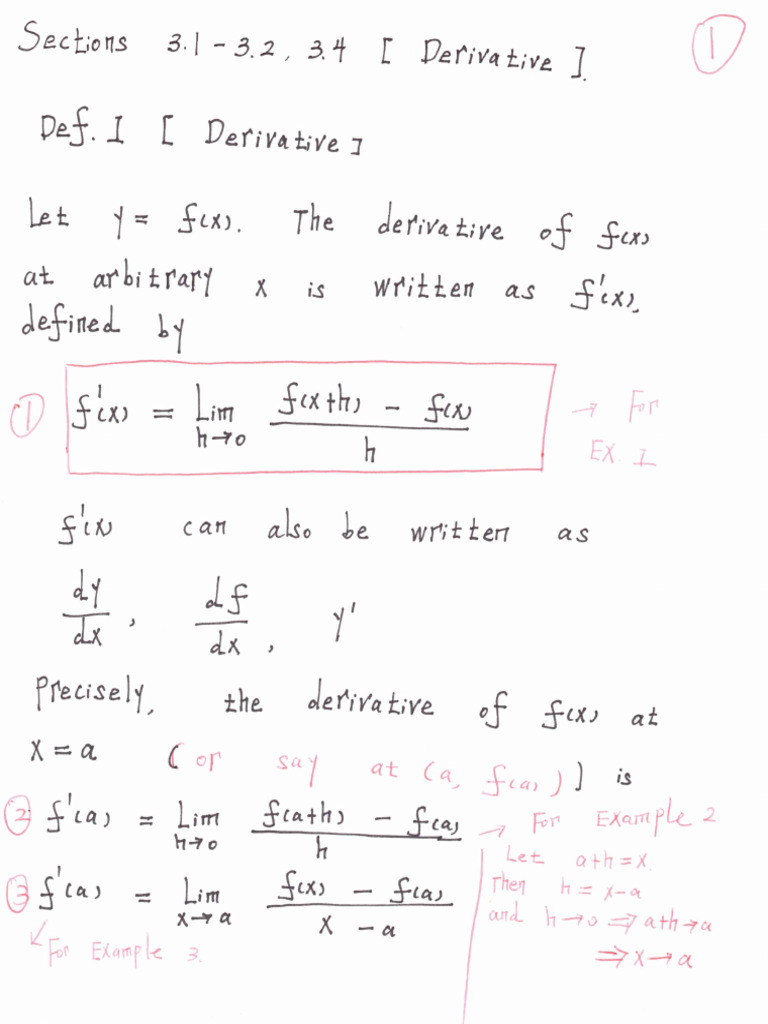 Sections 3.1 - 3.2, 3.4 [ Derivative ]. ①
Def. I [ Derivative ]
Let y = f(x). The derivative of f(x)
at arbitrary x is written as f'(x),
defined by
① f'(x) = Lim h→0 f(x+h) - f(x) / h → For
EX. I
f'(x) can also be written as
dy/dx, df/dx, y'
Precisely, the derivative of f(x) at
x = a ( or say at (a, f(a)) ) is
② f'(a) = Lim h→0 f(a+h) - f(a) / h → For Example 2
Let a+h = x.
Then h = x-a
and h→0 ⇒ a+h→a
⇒ x→a
③ f'(a) = Lim x→a f(x) - f(a) / x - a
↙ For Example 3.